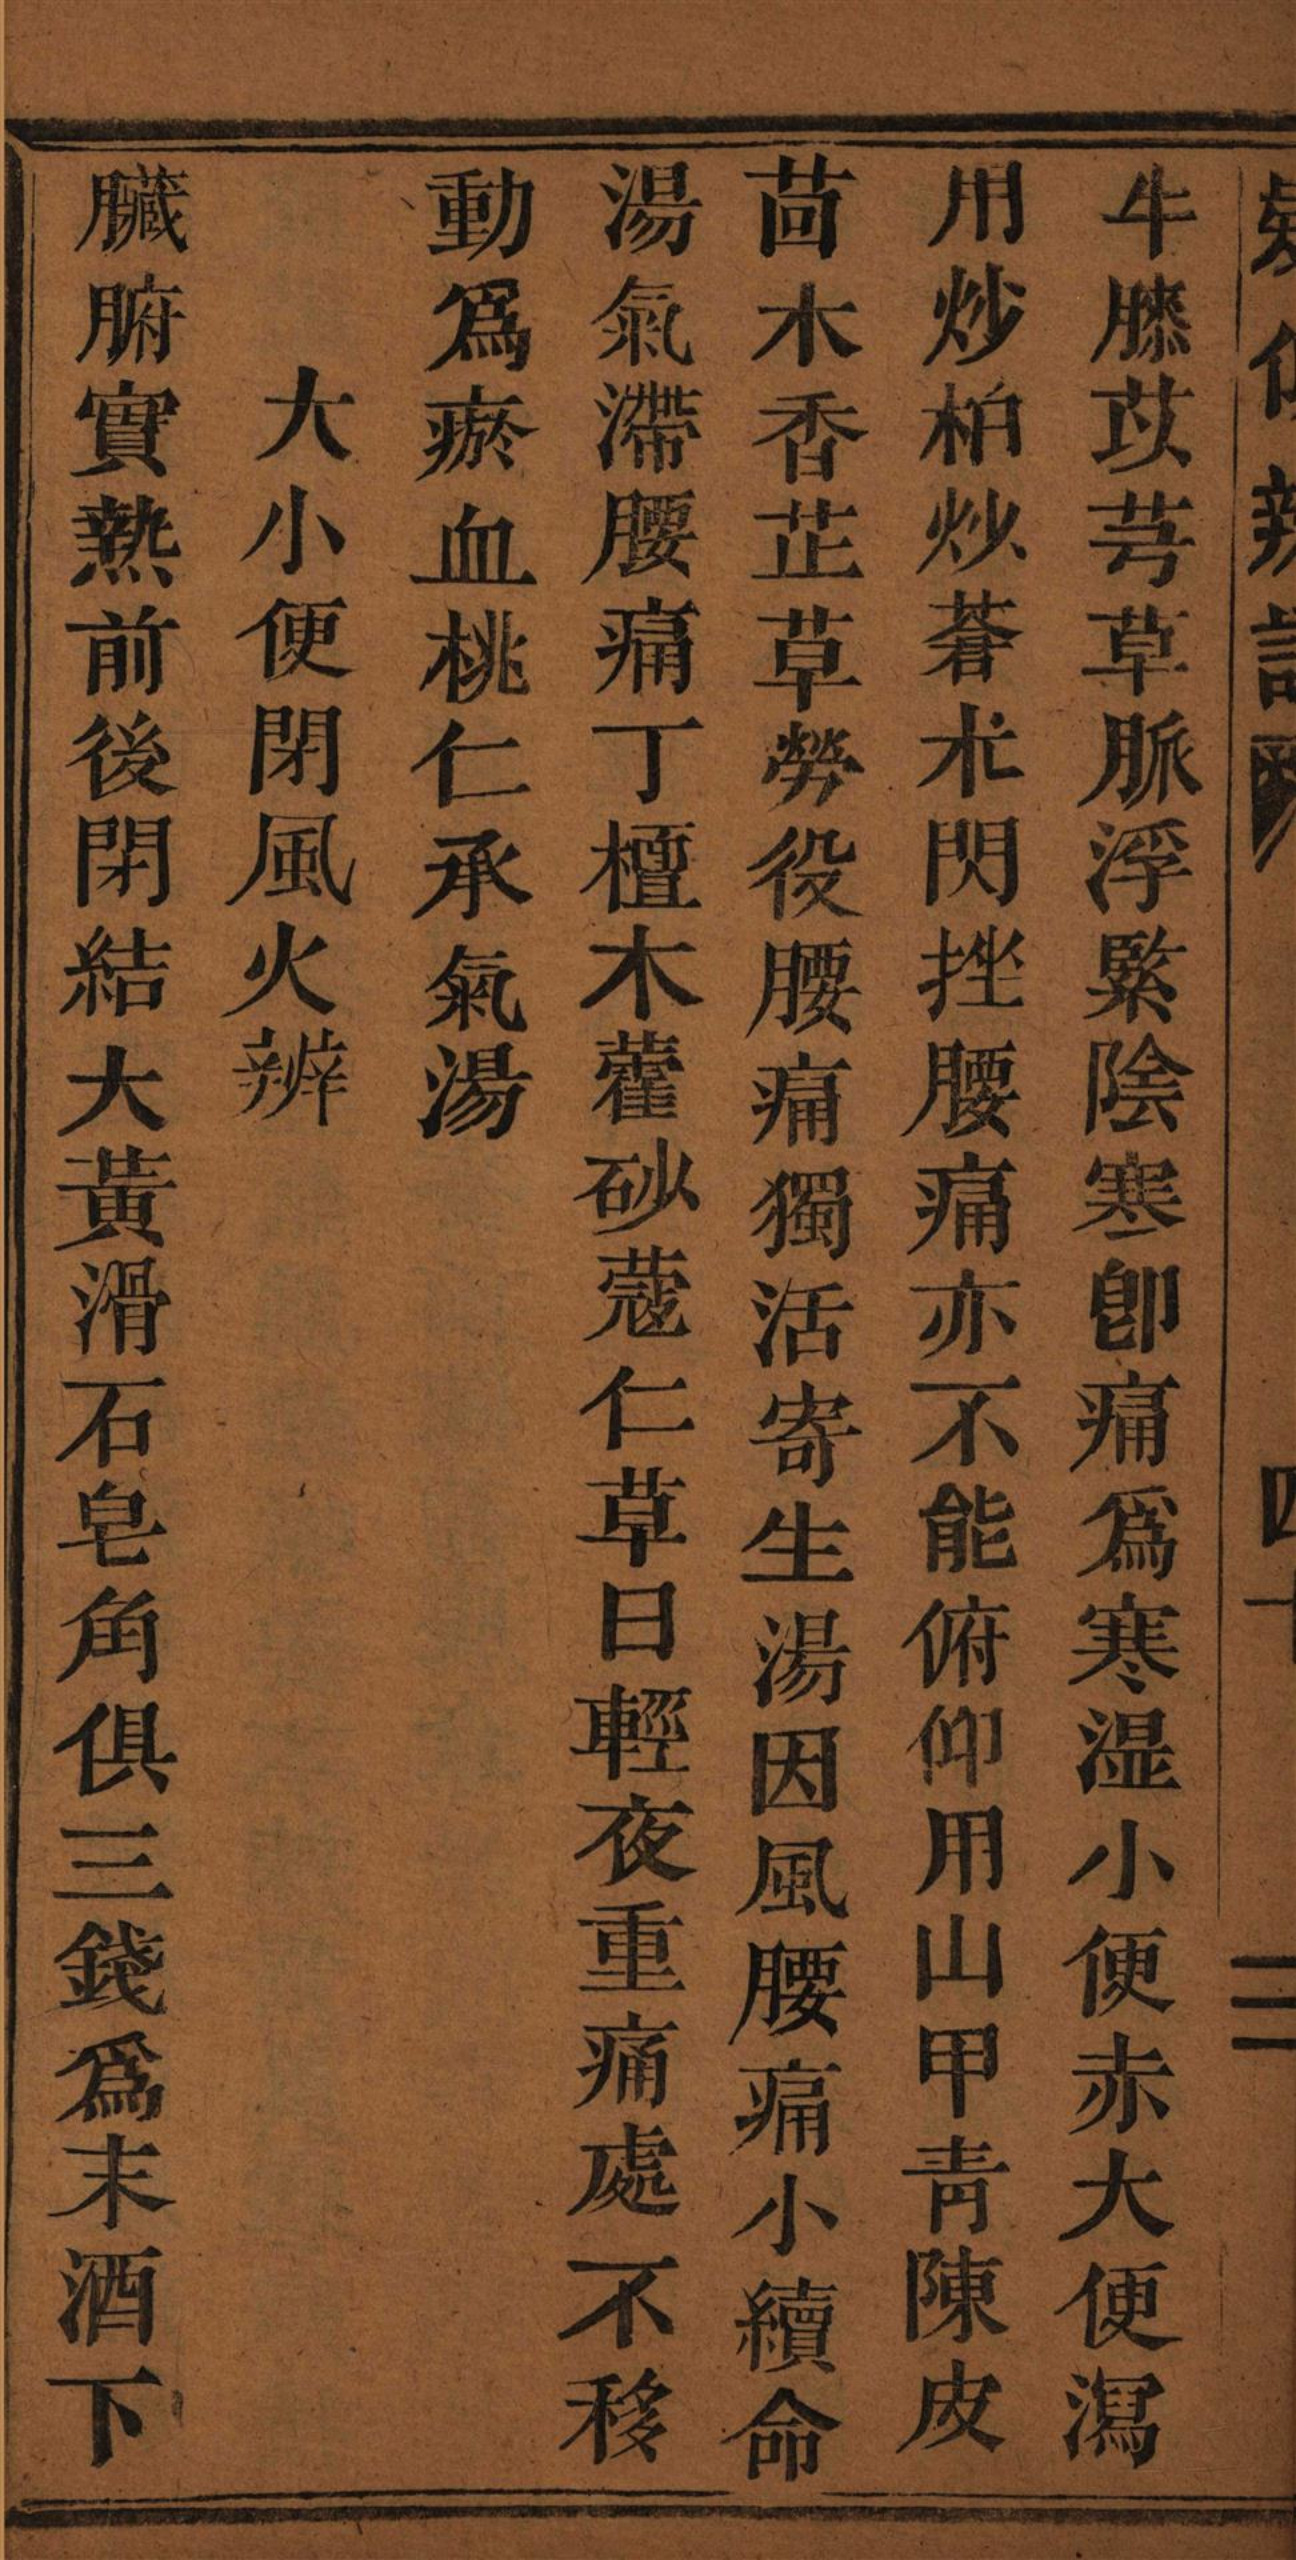 四十二
牛膝苡芎草脈浮緊陰寒卽痛爲寒湿小便赤大便瀉
用炒柏炒蒼朮閃挫腰痛亦不能俯仰用山甲青陳皮
茴木香芷草勞役腰痛獨活寄生湯因風腰痛小續命
湯氣滯腰痛丁檀木藿砂蔻仁草日輕夜重痛處不移
動爲瘀血桃仁承氣湯
大小便閉風火辨
臟腑實熱前後閉結大黃滑石皂角俱三錢爲末酒下